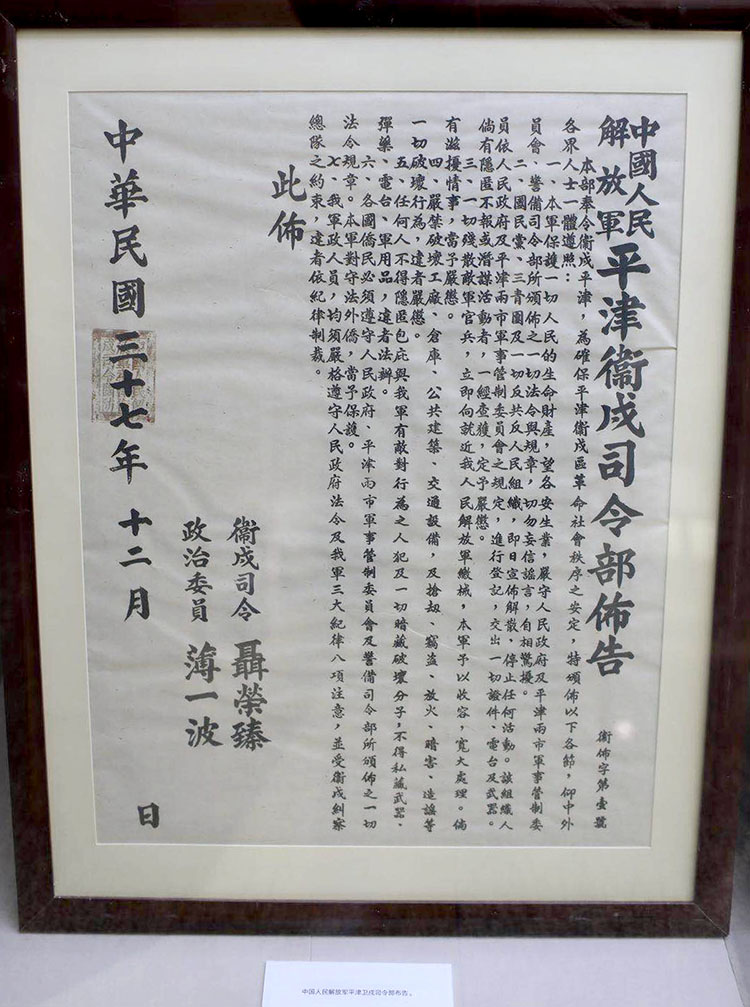 中國人民
解放軍
平津衛戍司令部佈告
衛佈字第壹號
本部奉令衛戍平津，為確保平津衛戍區革命社會秩序之安定，特頒佈以下各節，仰中外
各界人士一體遵照：
一、本軍保護一切人民的生命財產，望各安生業，嚴守人民政府及平津兩市軍事管制委
員會、警備司令部所頒佈之一切法令與規章，切勿妄信謠言，自相驚擾。
二、國民黨、三青團及一切反共反人民組織，即日宣佈解散，停止任何活動。該組織人
員依人民政府及平津兩市軍事管制委員會之規定，進行登記，交出一切證件、電台及武器。
倘有隱匿不報或潛謀活動者，一經查獲，定予嚴懲。
三、一切殘散敵軍官兵，立即向就近我人民解放軍繳械，本軍予以收容，寬大處理。倘
有滋擾情事，當予嚴懲。
四、嚴禁破壞工廠、倉庫、公共建築、交通設備，及搶劫、竊盜、放火、暗害、造謠等
一切破壞行為，違者嚴懲。
五、任何人不得隱匿包庇與我軍有敵對行為之人犯及一切暗藏破壞分子，不得私藏武器、
彈藥、電台、軍用品，違者法辦。
六、各國僑民必須遵守人民政府、平津兩市軍事管制委員會及警備司令部所頒佈之一切
法令規章。本軍對守法外僑，當予保護。
七、我軍政人員，均須嚴格遵守人民政府法令及我軍三大紀律八項注意，並受衛戍糾察
總隊之約束，違者依紀律制裁。
此佈
衛戍司令 聶榮臻
政治委員 薄一波
中華民國三十七年十二月 日
中国人民解放军平津卫戍司令部布告。